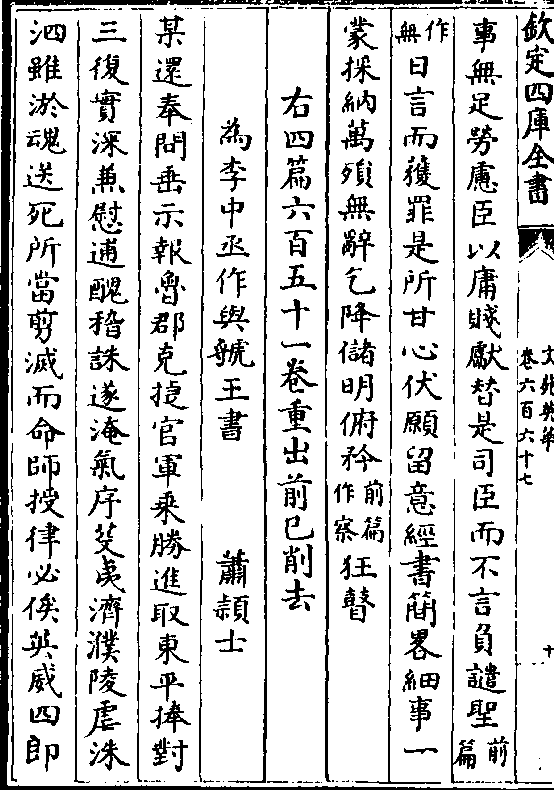 欽定四庫全書
文苑英華
卷六百六十七
十
事無足勞慮臣以庸賤獻替是司臣而不言負譴聖前篇
作無日言而獲罪是所甘心伏願留意經書簡畧細事一
蒙採納萬殞無辭乞降儲明俯矜前篇作察狂瞽
右四篇六百五十一卷重出前已削去
為李中丞作與虢王書 蕭頴士
某還奉問垂示報魯郡克捷官軍乗勝進取東平捧對
三復實深兼慰逋醜稽誅遂淹氣序芟夷濟濮陵虐洙
泗雖淤魂送死所當剪滅而命師授律必俟英威四郎